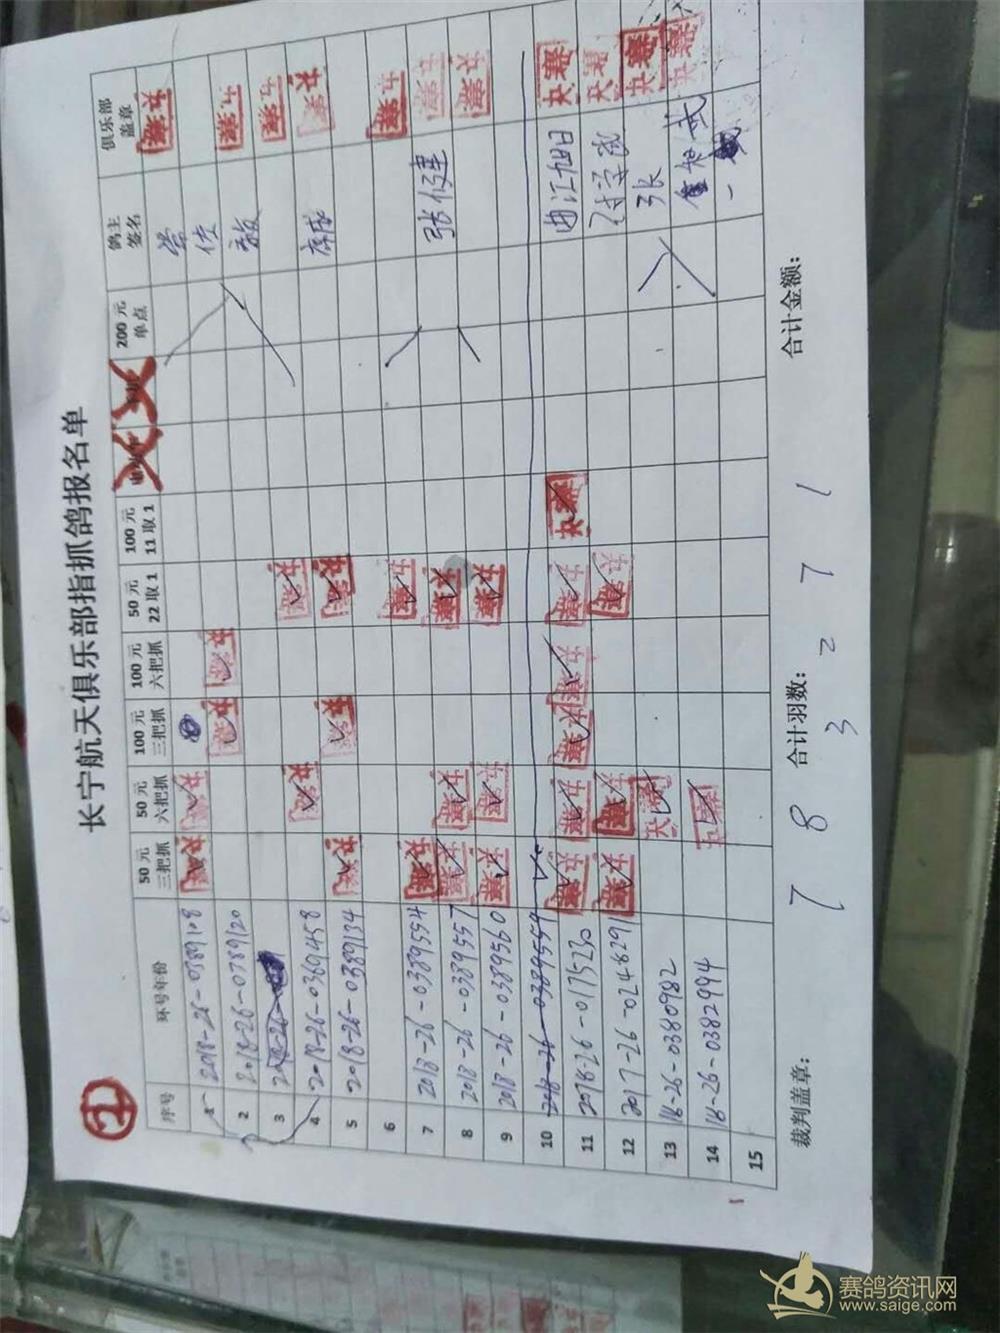 长宁航天俱乐部指抓鸽报名单
序号 环号年份 50 元 三把抓 50 元 六把抓 100 元 三把抓 100 元 六把抓 50 元 22 取 1 100 元 11 取 1 200 元 单点 鸽主 签名 俱乐部 盖章
1 2018-26-0389108
2 2018-26-0389120
3
4 2018-26-0369458
5 2018-26-0389134
6
7 2018-26-0389554 张俊建
8 2018-26-0389557
9 2018-26-0389560
10 2018-26-0389559
11 2018-26-0175230 曲江旭日
12 2017-26-0248291
13 18-26-0380982 张
14 18-26-0382994
15
裁判盖章: 合计羽数: 合计金额:
7 8 3 2 7 1
赛鸽资讯网
www.saige.com